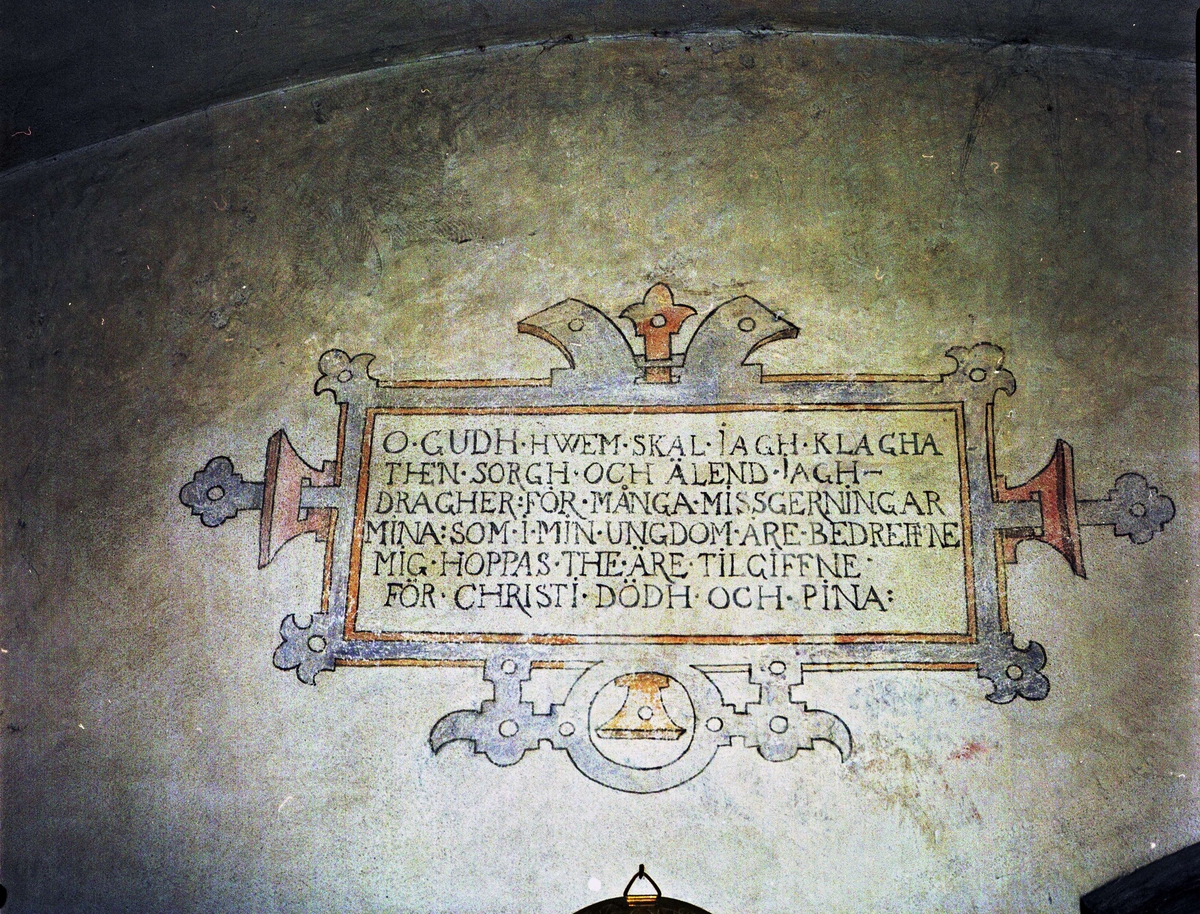 O·GUDH·HWEM·SKAL·JAGH·KLAGHA
THEN·SORGH·OCH ÄLEND·JAGH-
DRAGHER:FÖR·MÅNGA·MISSGERNINGAR
MINA:SOM·I·MIN·UNGDOM·ÄRE·BEDREFFNE
MIG·HOPPAS·THE·ÄRE·TILGIFFNE·
FÖR·CHRISTI·DÖDH·OCH·PINA: